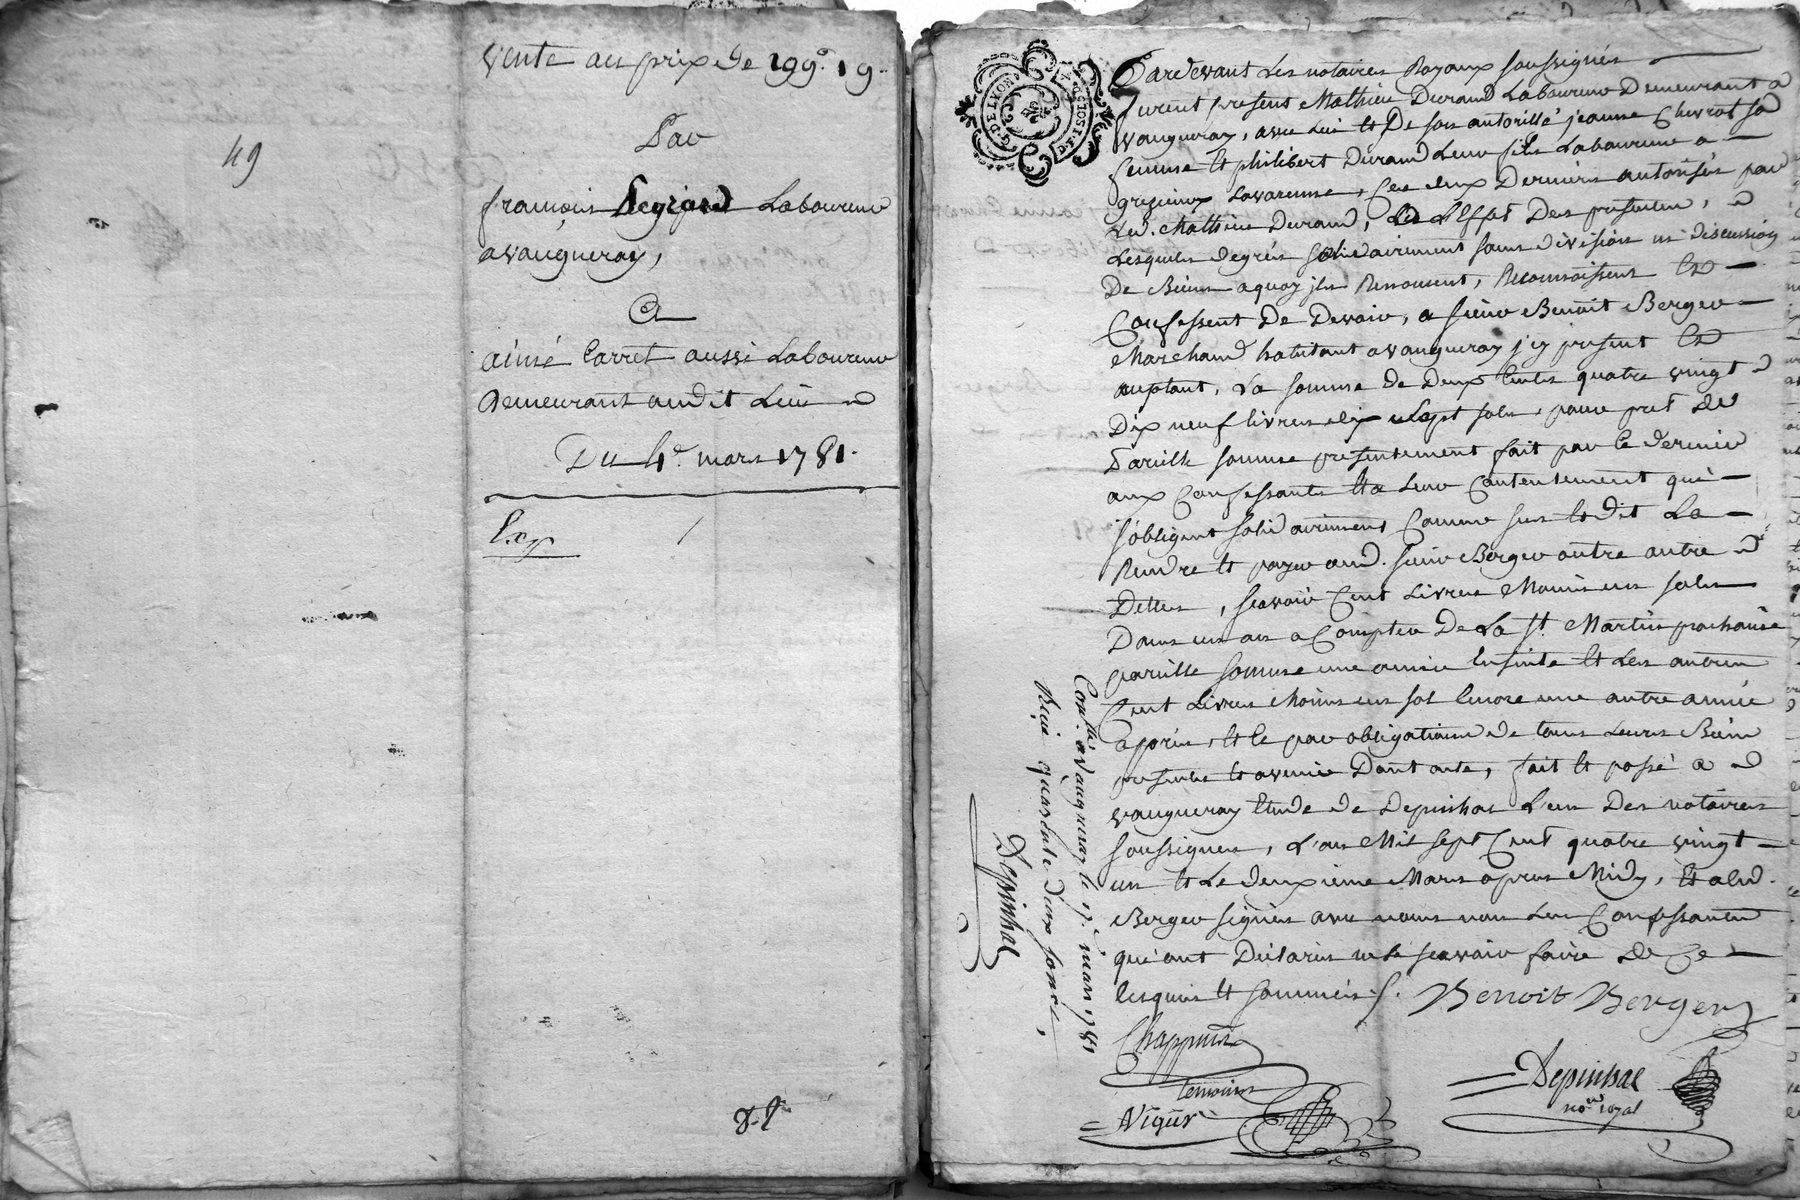 49
Vente au prix de 199.# 19.
Par
françois Legrand Laboureur
a vaugneray,
Et
aimé Carret aussi Laboureur
demeurant audit Lieu
Du 4.e mars 1781.
Exp
G. DE LYON
Pardevant Les notaires Royaux soussignés
furent presents Mathieu Durand Laboureur Demeurant a
vaugneray, avec Lui et De son autorité jeanne Chevrot sa
femme et philibert Durand Leur fils Laboureur a
grezieux Lavarenne, Ces deux Derniers autorisés par
Led. Mathieu Durand, a L'Effet Des presentes,
Lesquels de grés solidairement sans division ni discussion
De Biens a quoy jls Renoncent, Reconnoissent Et
Confessent De Devoir, a sieur Benoit Berger
Marchand habitant a vaugneray j'cy present Et
acceptant, La somme de Deux Cents quatre vingt
Dix neuf livres dix sept sols, pour pret de
Pareille somme presentement fait par le dernier
aux Confessants Et a Leur Contentement qui
s'obligent solidairement Comme sus Et dit La
Rendre Et payer aud. sieur Berger outre autre
Dettes, scavoir Cent Livres Moins un sols
Dans un an a Compter De La St. Martin prochaine
pareille somme une année Ensuite Et Les autres
Cent Livres Moins un sol Encore une autre année
après, Et Ce par obligations de tous Leurs Biens
presents Et avenir Dont acte, fait Et passé a
vaugneray Etude de Depinhac L'un Des notaires
soussignes, L'an Mil sept Cent quatre vingt
un Et Le deuxieme Mars apres Midy, Et a led.
Berger signés avec nous non Les Confessants
qui ont Déclarés ne le scavoir faire de Ce
Enquis Et sommés
Benoit Berger
Chappuis
temoins
Viguer
Depinhac
no.re royal
Con.lle a Vaugneray le 17. mars 1781
Reçu quarante deux sous,
Depinhac